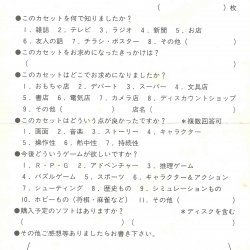 (　　　　　　　　) 枚
●このカセットを何で知りましたか？
1．雑誌　2．テレビ　3．ラジオ　4．新聞　5．お店
6．友人の話　7．チラシ・ポスター　8．その他(　　　　)
●このカセットをお求めになったきっかけは？
(　　　　　　　　　　　　　　　　　　)
●このカセットはどこでお求めになりましたか？
1．おもちゃ店　2．デパート　3．スーパー　4．文具店
5．書店　6．電気店　7．カメラ店　8．ディスカウントショップ
9．その他(　　　　　　)　店名(　　　　　　　　)
●このカセットはどういう点が良かったですか？　＊複数回答可
1．画面　2．音楽　3．ストーリー　4．キャラクター
5．操作性　6．熱中性　7．持続性
●今後どういうゲームが欲しいですか？
1．R・P・G　2．アドベンチャー　3．推理ゲーム
4．パズルゲーム　5．スポーツ　6．キャラクター＆アクション
7．シューティング　8．歴史もの　9．シミュレーションもの
10．ホビーもの（将棋・麻雀など）　11．その他(　　　　)
●購入予定のソフトはありますか？　　＊ディスクを含む
(　　　　　　　　　　　　　　　　　　)
●その他ご感想等ありましたらお書き下さい。